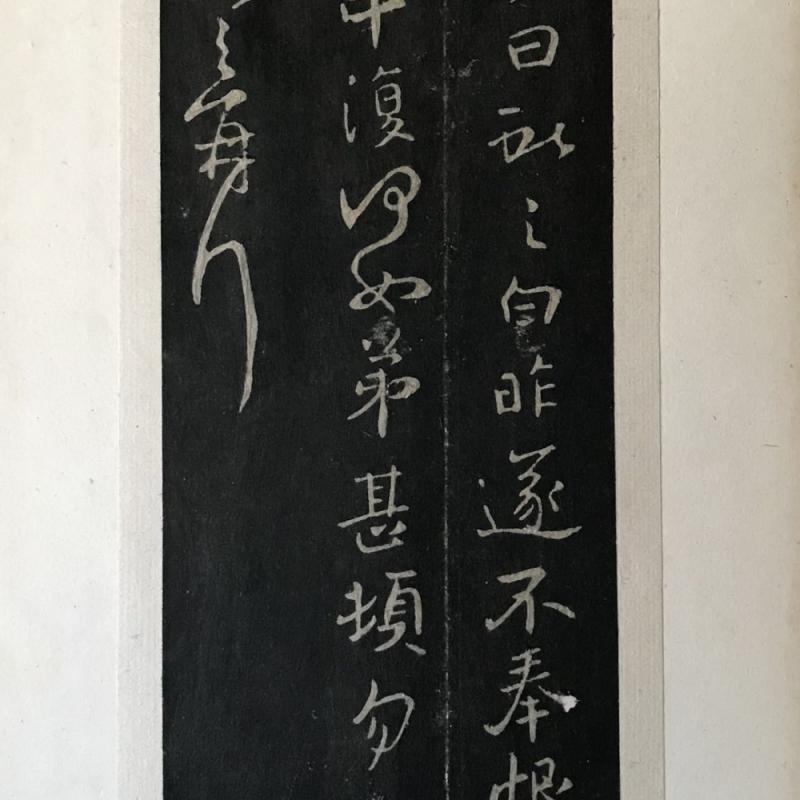 日獻之白昨遂不奉恨
中復何如弟甚頓勿
之再拜